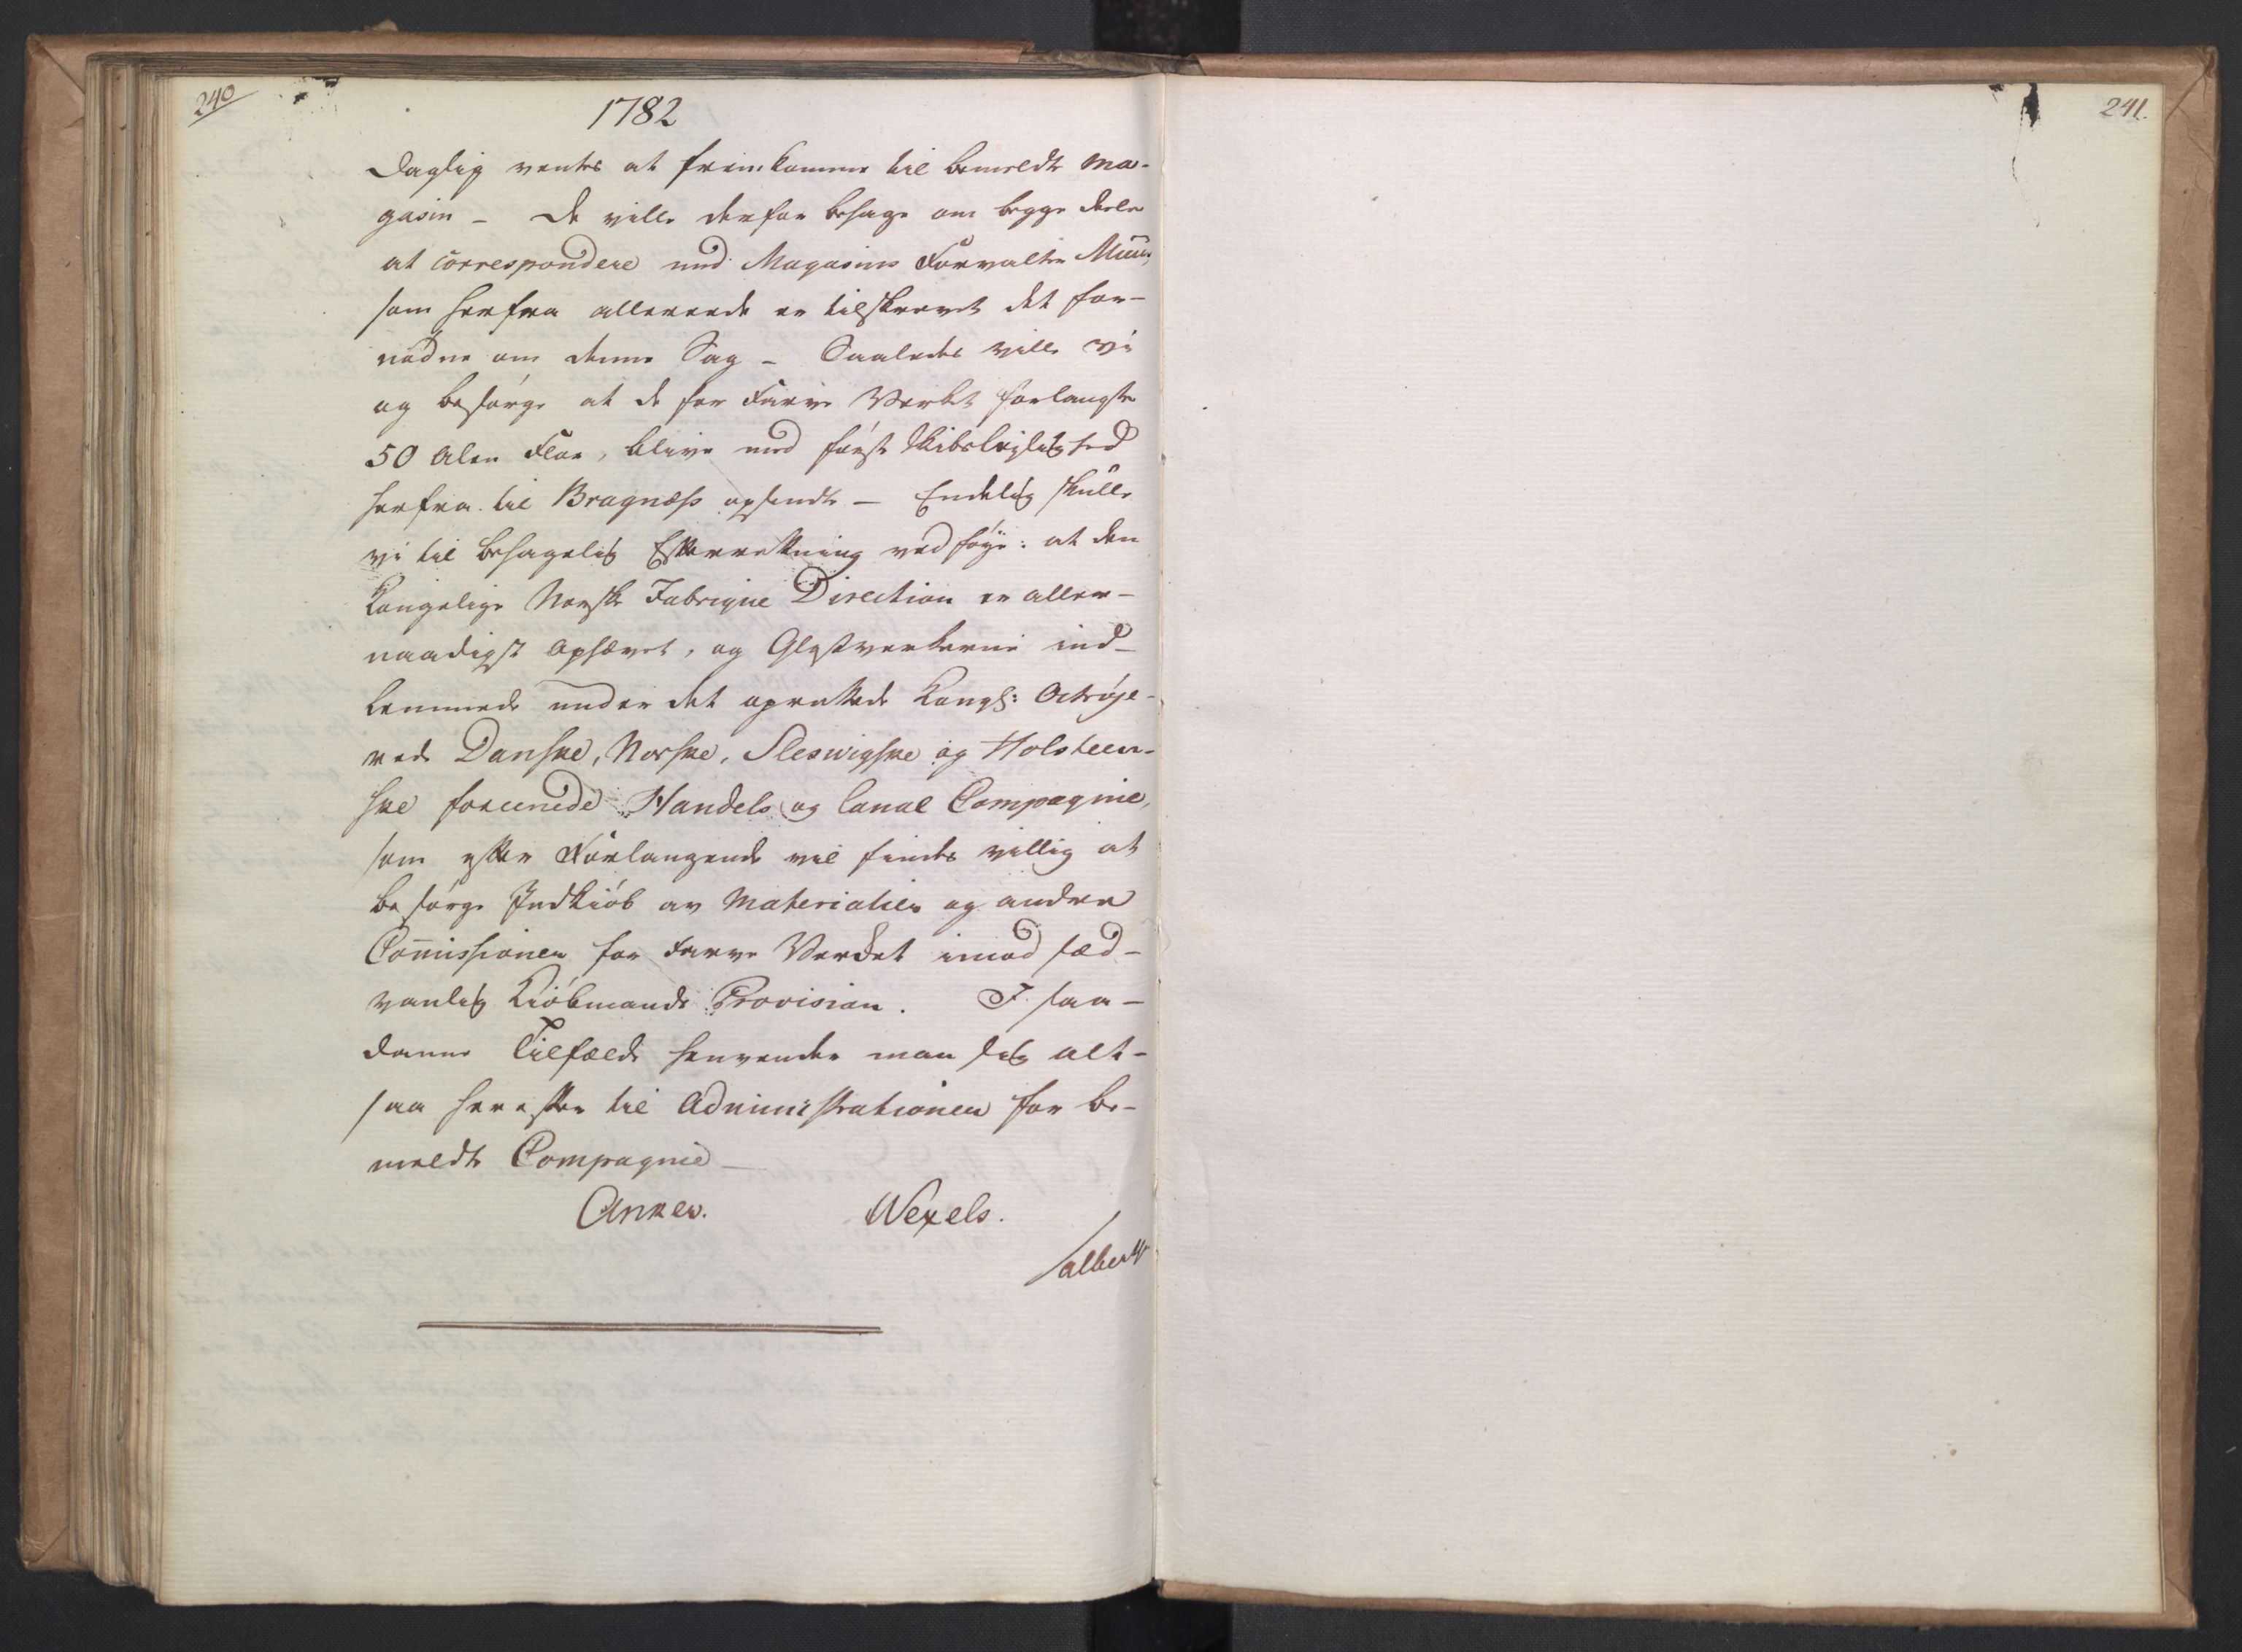 240
1782
Daglig ventes at fremkomme til bemeldte Ma-
gasin - De ville derfor behage om begge dele
at correspondere med Magasins Forvalter Muus,
som herfra allereede er tilskrevet det for-
nødne om denne Sag - Saaledes ville vi
og besørge at de for Farve Verket forlangte
50 Alen Flor, blive med første Skibsleylighed
herfra til Bragnæss opsendte - Endelig skulle
vi til behagelig Efterretning vedføye: at den
Kongelige Norske Fabrique Direction er aller-
naadigst Ophævet, og Glasverkerne ind-
lemmede under det oprettede Kongl: Octroje-
rede Danske, Norske, Sleswigske og Holsteen-
ske foreenede Handels og Canal Compagnie,
som efter Forlangende vil findes villig at
besørge Indkiøb av Materialier og andre
Com̅issioner for Farve Verket imod sæd-
vanlig Kiøbmands Provision. I saa-
danne Tilfælde henvender man sig alt-
saa herefter til Administrationen for be-
meldte Compagnie -
Anker. Wexels.
/albert
241.